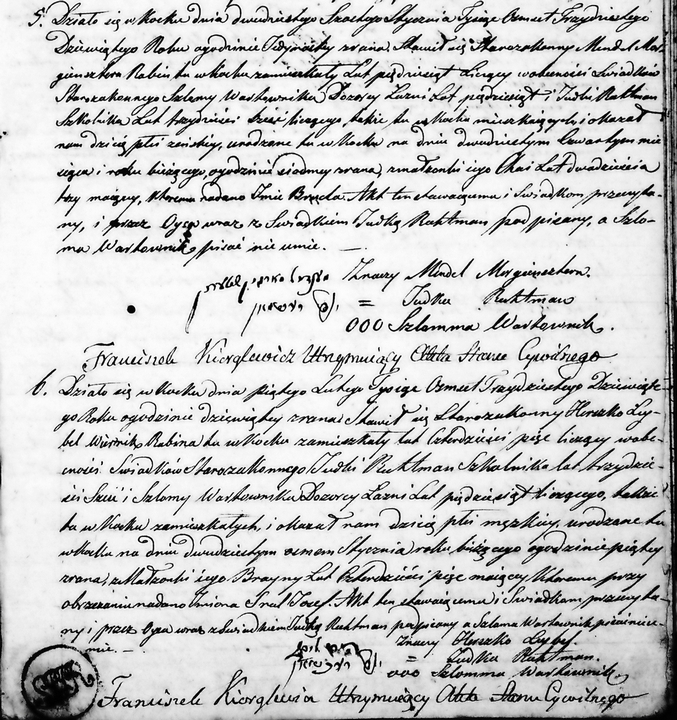 5. Działo się w Kocku dnia dwudziestego Szóstego Stycznia Tysiąc Ośmset Trzydziestego
Dziewiątego Roku o godzinie zrana. Stawił się Starozakonny Mendel Mor-
giensztern Rabin tu w Kocku zamieszkały Lat pięćdziesiąt Liczący w obecności Świadków
Starozakonnego Szlomy Warkownika Dozorcy Łazni Lat pięćdziesiąt i Judki Ruktman
Szkolnika Lat trzydzieści sześć liczącego, także tu w Kocku mieszkających i okazał
nam dziecię płci żeńskiej, urodzone tu w Kocku na dniu dwudziestym Czwartym mie-
siąca i roku bieżącego, o godzinie siódmej zrana z małżonki jego Chai Lat dwadzieścia
trzy mającej, któremu nadano Imie Brucha. Akt ten stawającemu i Świadkom przeczyta-
ny, i przez Oyca wraz z Swiadkiem Judką Ruktman podpisany, a Szlo-
ma Warkownik pisać nie umie. —
Znaczy Mendel Morgiensztern.
= Judka Ruktman
000 Szlomma Warkownik.
Franciszek Utrzymujący Akta Stanu Cywilnego
6. Działo się w Kocku dnia piątego Lutego Tysiąc Ośmset Trzydziestego Dziewiąte-
go Roku o godzinie dziewiątej zrana. Stawił się Starozakonny Herszko Ley-
bel Rabina tu w Kocku zamieszkały lat czterdzieści pięć liczący w obe-
cności Świadków Starozakonnego Judki Ruktman Szkolnika lat trzydzie-
ści Sześć i Szlomy Warkownika Dozorcy Łazni Lat pięćdziesiąt liczącego, także
tu w Kocku zamieszkałych, i okazał nam dziecię płci męzkiej, urodzone tu
w Kocku na dniu dwudziestym osmem Stycznia roku bieżącego o godzinie piątej
zrana, z Małżonki jego Brayny Lat Czterdzieści pięć mającej, któremu przy
obrzezaniu nadano Imiona Srul Jozef. Akt ten stawającemu i Świadkom przeczyta-
ny i przez Oyca wraz z Świadkiem Judką Ruktman podpisany a Szloma Warkownik pisać nieu-
mie. —
Znaczy Herszko Leybel.
= Judka Ruktman.
000 Szlomma Warkownik.
Franciszek Utrzymujący Akta Stanu Cywilnego